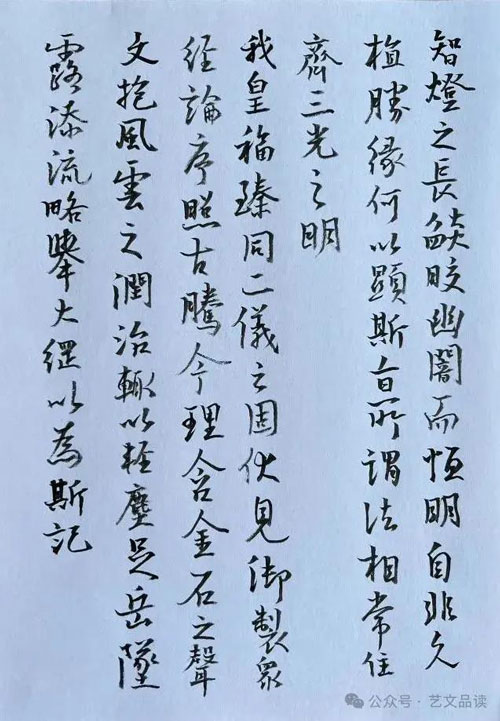 智燈之長焰皎幽闇而恒明自非久
植勝緣何以顯斯旨所謂法相常住
齊三光之明
我皇福臻同二儀之固伏見御製衆
經論序照古騰今理含金石之聲
文抱風雲之潤治輒以輕塵足岳墜
露添流略舉大綱以為斯記
公众号·艺文品读